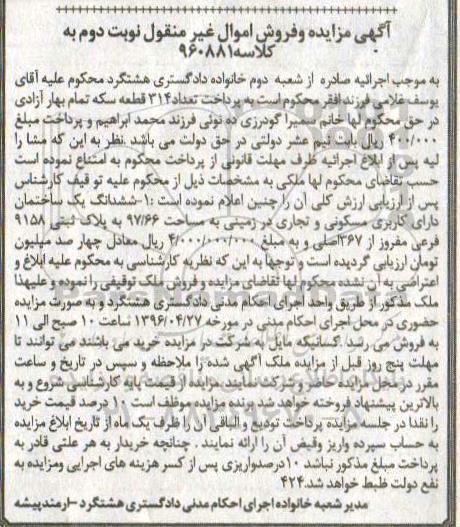 آگهی مزایده وفروش اموال غیر منقول نوبت دوم به
کلاسه۹۶۰۸۸۱
به موجب اجرائیه صادره از شعبه دوم خانواده دادگستری هشتگرد محکوم علیه آقای
یوسف غلامی فرزند افقر محکوم است به پرداخت تعداد۳۱۴ قطعه سکه تمام بهار آزادی
در حق محکوم لها خانم سمیرا گودرزی ده نوئی فرزند محمد ابراهیم و پرداخت مبلغ
ریال بابت نیم عشر دولتی در حق دولت می باشد نظر به این که مشا را
لیه پس از ابلاغ اجرائیه ظرف مهلت قانونی از پرداخت محکوم به امتناع نموده است
حسب تقاضای محکوم لها ملکی به مشخصات ذیل از محکوم علیه تو قیف کارشناس
پس از ارزیابی ارزش کلی آن را چنین اعلام نموده است :۱-ششدانگ یک ساختمان
دارای کاربری مسکونی و تجاری در زمینی به مساحت ۹۷/۶۶ به پلاک ثبتی ۹۱۵۸
فرعی مفروز از ۳۶۷اصلی و به مبلغ ۴/۰۰۰/۰۰۰/۰۰۰ ریال معادل چهار صد میلیون
تومان ارزیابی گردیده است و توجها به این که نظریه کارشناسی به محکوم علیه ابلاغ و
اعتراضی به آن نشده محکوم لها تقاضای مزایده و فروش ملک توقیفی را نموده و علیهذا
ملک مذکور از طریق واحد اجرای احکام مدنی دادگستری هشتگرد و به صورت مزایده
حضوری در محل اجرای احکام مدنی در مورخه ۱۳۹۶/۰۴/۲۷ ساعت ۱۰ صبح الی ۱۱
به فروش می رسد .کسانیکه مایل به شرکت در مزایده خرید می باشند می توانند تا
مهلت پنج روز قبل از مزایده ملک آگهی شده را ملاحظه و سپس در تاریخ و ساعت
مقرر در محل مزایده حاضر و شرکت نمایند .مزایده از قیمت پایه کارشناسی شروع و به
بالاترین پیشنهاد فروخته خواهد شد.برنده مزایده موظف است ۱۰ درصد قیمت خرید
را نقدا در جلسه مزایده پرداخت تودیع و الباقی آن را ظرف یک ماه از تاریخ ابلاغ مزایده
به حساب سپرده واریز وقبض آن را ارائه نمایند . چنانچه خریدار به هر علتی قادر به
پرداخت مبلغ مذکور نباشد ۱۰درصدواریزی پس از کسر هزینه های اجرایی ومزایده به
نفع دولت ظبط خواهد شد.۴۲۴
مدیر شعبه خانواده اجرای احکام مدنی دادگستری هشتگرد -ارمندپیشه